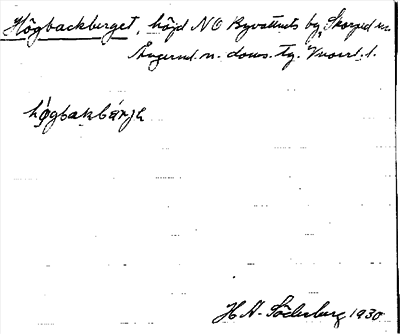 Högbackberget, höjd NO Byvattnets by, Skorped sn.
Ångerml. n. doms. tg. 
högbakbärje
H. A. Söderberg 1930